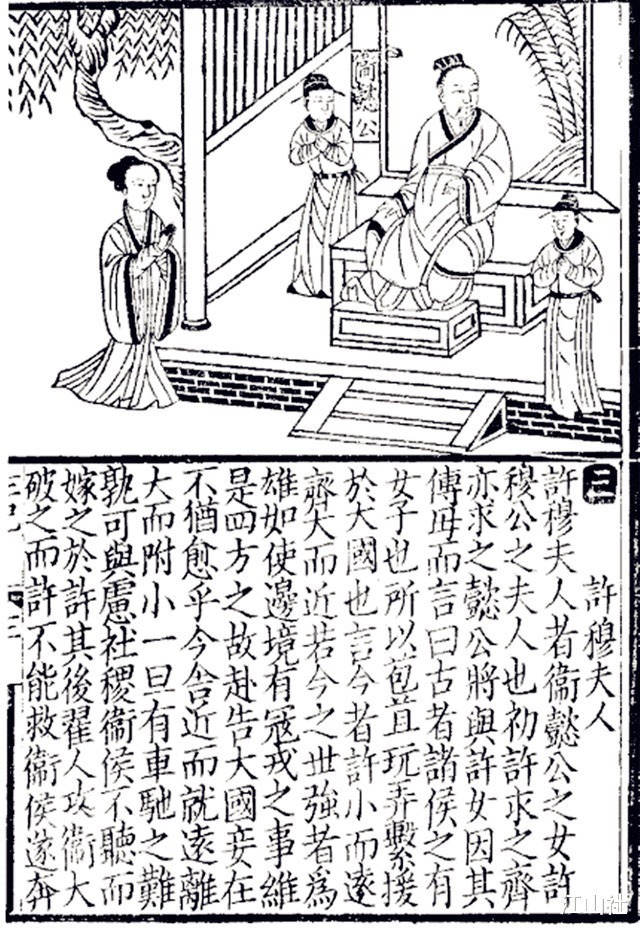 衞懿公
三
許穆夫人
許穆夫人者衞懿公之女許
穆公之夫人也初許求之齊
亦求之懿公將與許女因其
傅母而言曰古者諸侯之有
女子也所以苞苴玩弄繫援
於大國也言今者許小而遠
齊大而近若今之世強者爲
雄如使邊境有冦戎之事維
是四方之故赴告大國妾在
不猶愈乎今舍近而就遠離
大而附小一旦有車馳之難
孰可與慮社稷衞侯不聽而
嫁之於許其後翟人攻衞大
破之而許不能救衞侯遂奔
江山社